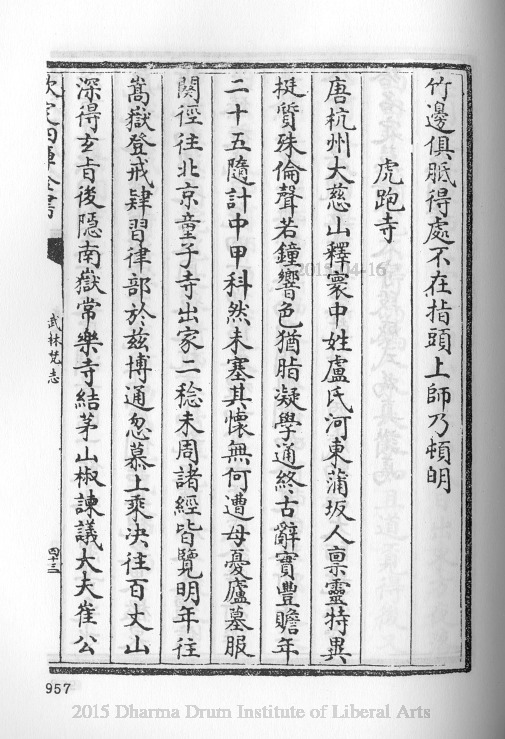 竹邊俱胝得處不在指頭上師乃頓明
虎跑寺
唐杭州大慈山釋寰中姓盧氏河東蒲坂人禀靈特異
挺質殊倫聲若鐘響色猶脂凝學通終古辭實豐贍年
二十五隨計中甲科然未塞其懷無何遭母憂廬墓服
闋徑往北京童子寺出家二稔未周諸經皆覽明年往
嵩嶽登戒肄習律部於兹博通忽慕上乘决往百丈山
深得玄旨後隱南嶽常樂寺結茅山椒諫議大夫崔公
欽定四庫全書
武林梵志
四十三
957
2015-04-16
2015 Dharma Drum Institute of Liberal Arts